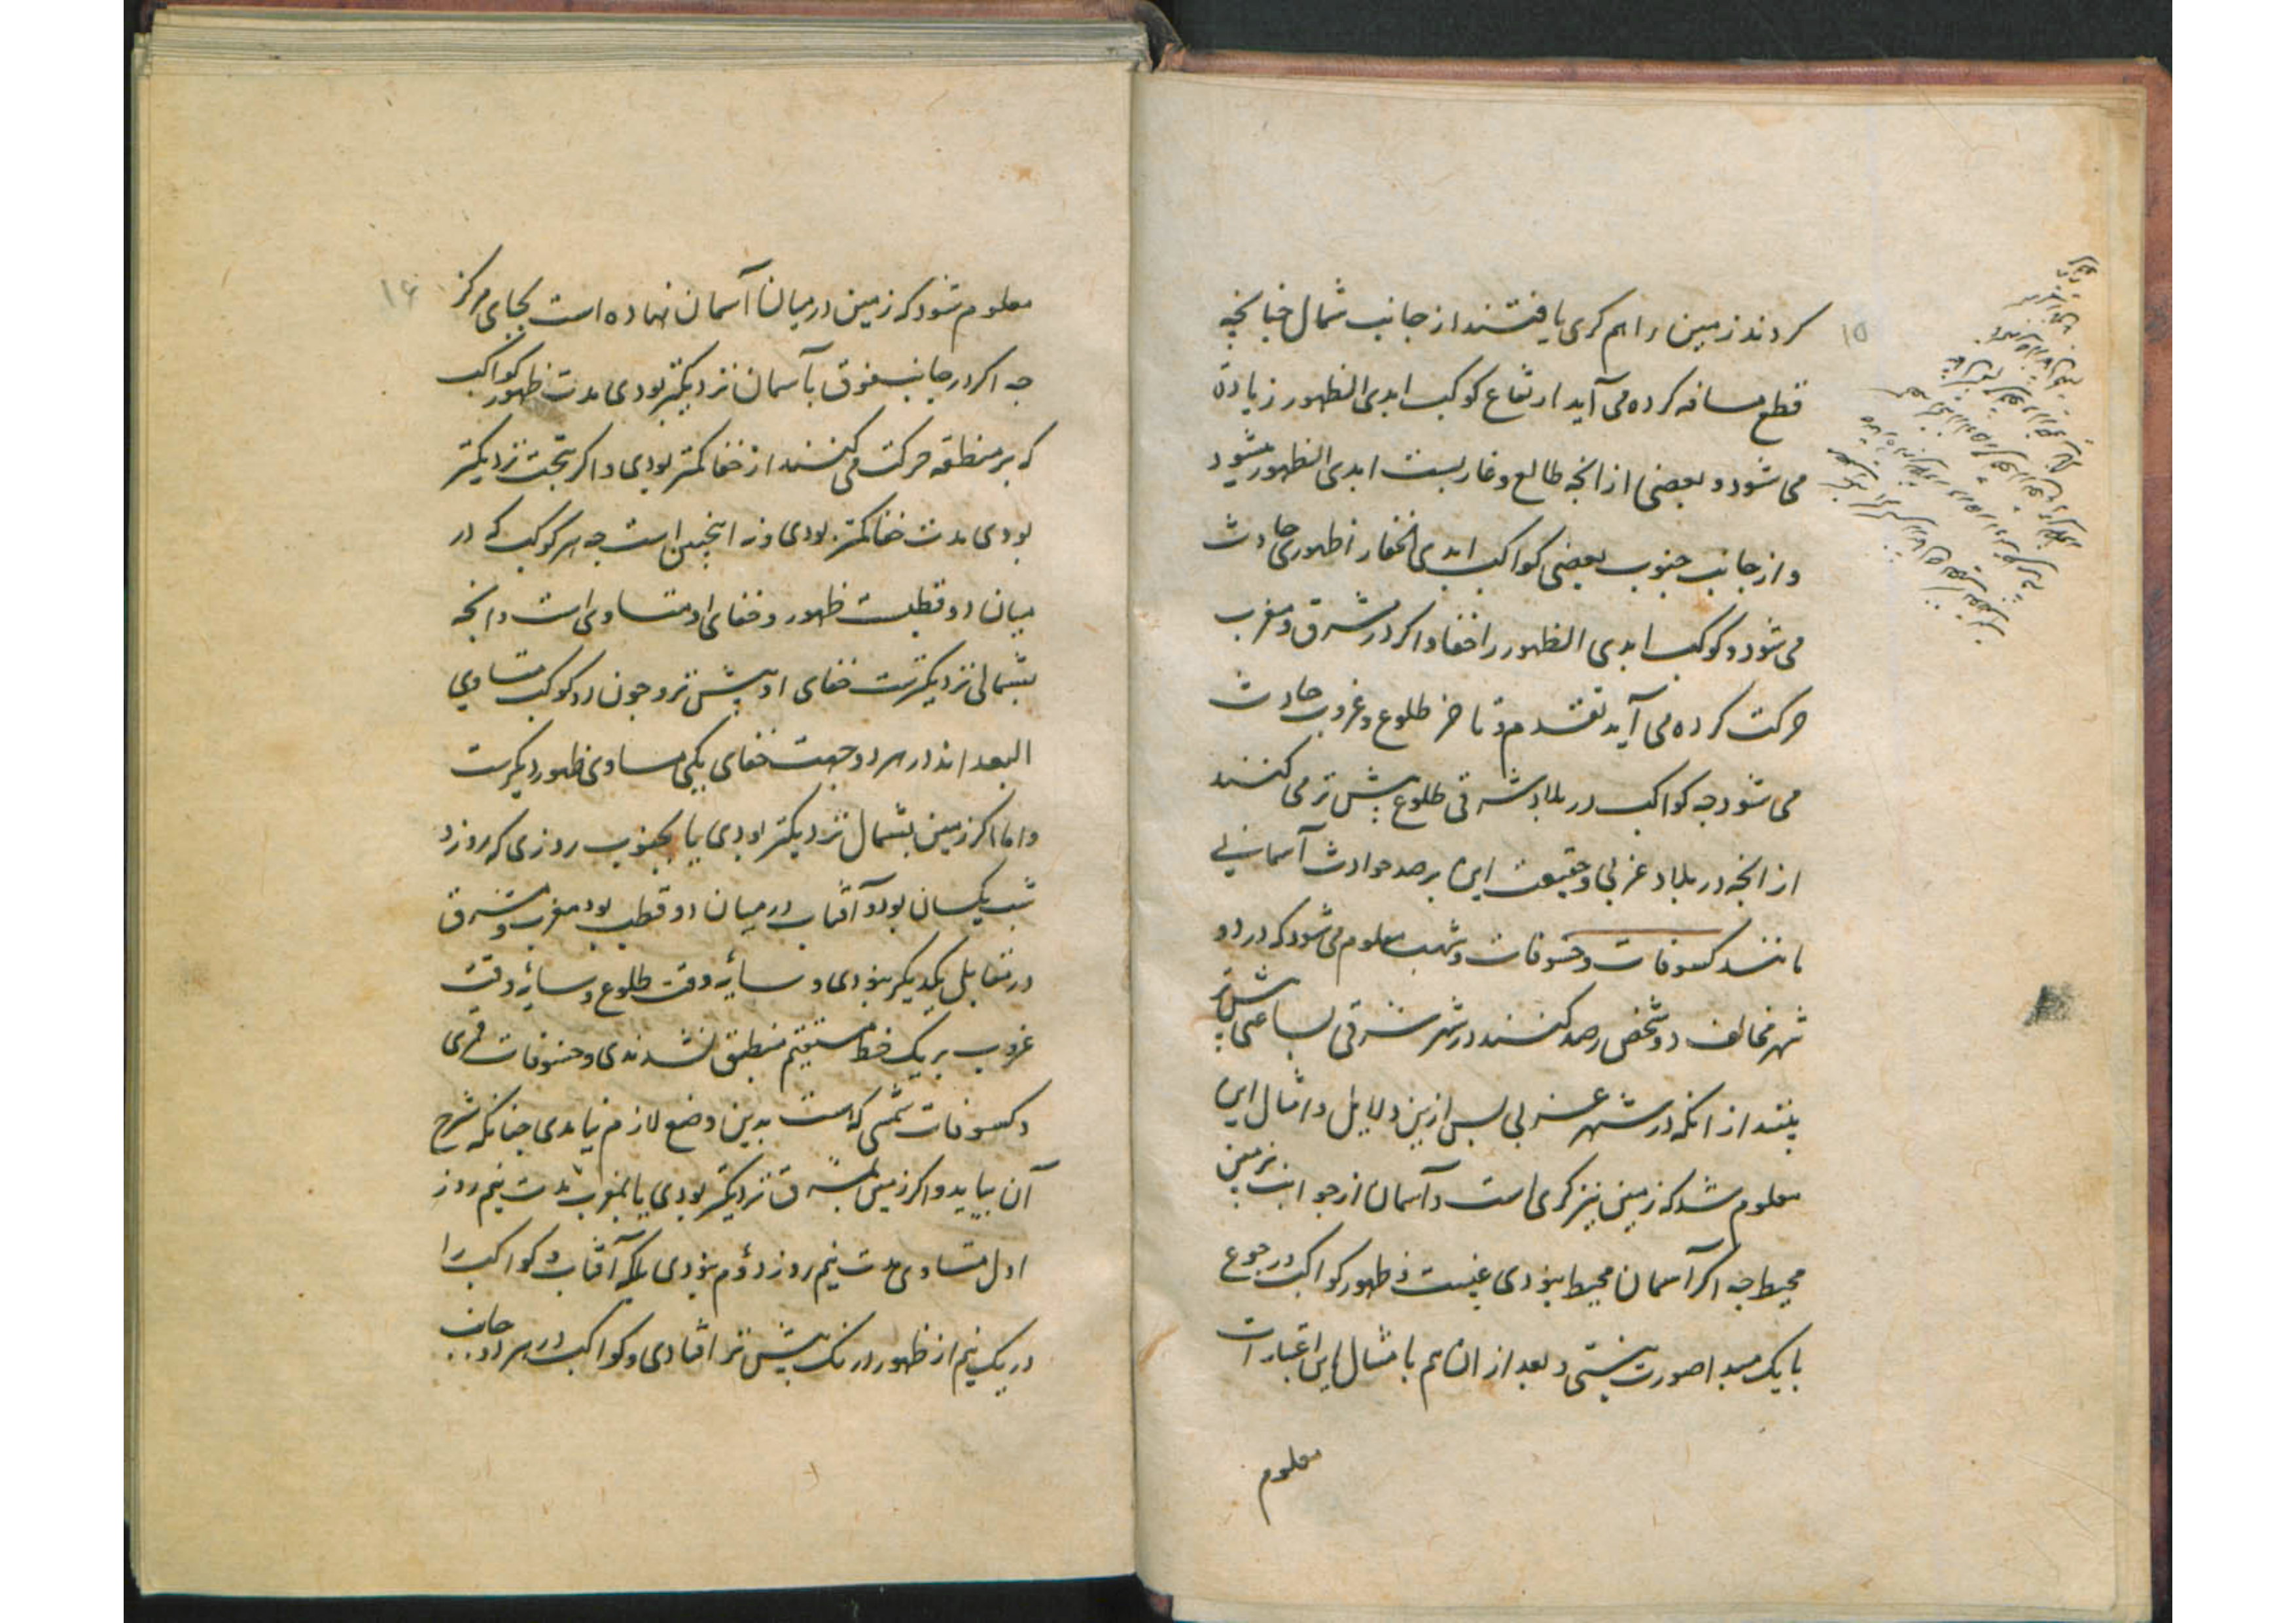 ۱۵
کردند زمین را هم کری یافتند از جانب شمال چنانچه
قطع مسافه کرده می آید ارتفاع کوکب ابدی الظهور زیاده
می شود و بعضی از انچه طالع و غاربست ابدی الظهور میشود
و از جانب جنوب بعضی کواکب ابدی الخفا را ظهوری حادث
می شود و کوکب ابدی الظهور را خفا و اکر در مشرق و مغرب
حرکت کرده می آید تقدم و تاخر طلوع و غروب حادث
می شود چه کواکب در بلاد شرقی طلوع پیش تر می کنند
از انچه در بلاد غربی و حقیقت این برصد حوادث آسمانی
مانند کسوفات و خسوفات و شهب معلوم می شود که در دو
شهر مخالف دو شخص رصد کنند در شهر شرقی بساعتی پیش تر
بینند از انکه در شهر غربی پس ازین دلایل و امثال این
معلوم شد که زمین نیز کری است و آسمان از جوانب زمین
محیط چه اکر آسمان محیط نبودی غیبت و ظهور کواکب و رجوع
با یک مبدا صورت نبستی و بعد از ان هم بامثال این اعتبارات
معلوم
۱۶
معلوم شود که زمین در میان آسمان نهاده است بجای مرکز
چه اکر در جانب فوق بآسمان نزدیکتر بودی مدت ظهور کواکب
که بر منطقه حرکت می کنند از خفا کمتر بودی و اکر بتحت نزدیکتر
بودی مدت خفا کمتر بودی و نه اینچنین است چه هر کوکب که در
میان دو قطبست ظهور و خفای او متساوی است و انچه
بشمالی نزدیکترست خفای او پیش تر و چون دو کوکب متساوی
البعد اند در هر دو جهت خفای یکی مساوی ظهور دیکرست
و اما اکر زمین بشمال نزدیکتر بودی یا بجنوب روزی که روز و
شب یکسان بود و آفتاب در میان دو قطب بود مغرب و مشرق
در مقابل یکدیکر نبودی و سایه وقت طلوع و سایه وقت
غروب بر یک خط مستقیم منطبق نشدندی و خسوفات قمری
و کسوفات شمسی که است بدین وضع لازم نیامدی چنانکه شرح
آن بیاید و اکر زمین بمشرق نزدیکتر بودی یا بمغرب مدت نیم روز
اول متساوی مدت نیم روز دوم نبودی بلکه آفتاب و کواکب را
در یک نیم از ظهور درنک پیش تر افتادی و کواکب در هر دو جانب